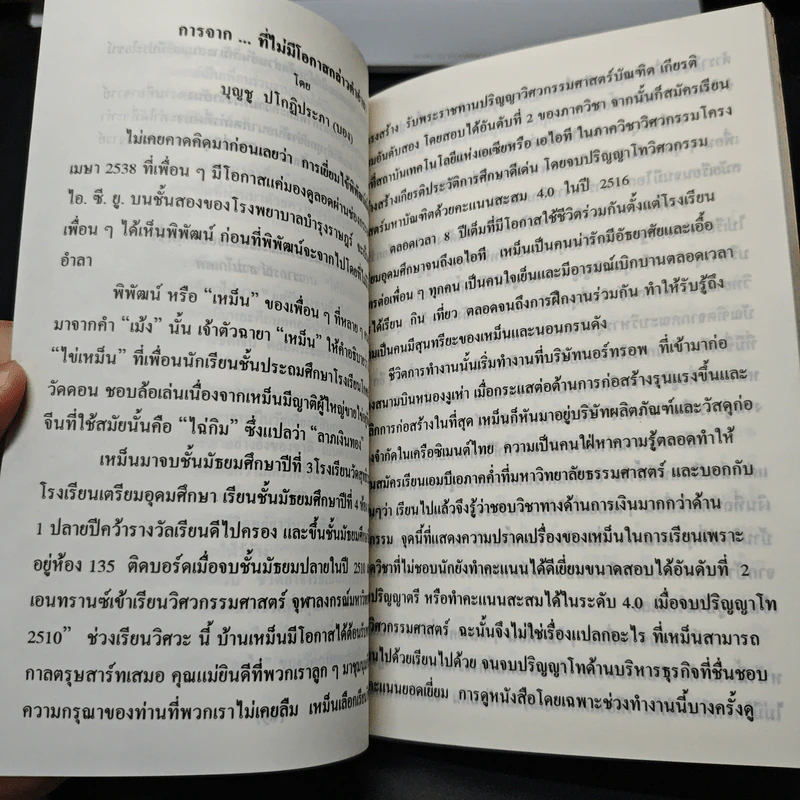 การจาก ... ที่ไม่มีโอกาสกล่าวคำอำ
โดย
บุญชู ปโกฏิประภา (บอง)
ไม่เคยคาดคิดมาก่อนเลยว่า การเยี่ยมไข้พิพัฒน์
เมษา 2538 ที่เพื่อน ๆ มีโอกาสแค่มองดูลอดผ่านช่อง
ไอ. ซี. ยู. บนชั้นสองของโรงพยาบาลบำรุงราษฎร์
เพื่อน ๆ ได้เห็นพิพัฒน์ ก่อนที่พิพัฒน์จะจากไปโดยที่
อำลา
พิพัฒน์ หรือ “เหม็น” ของเพื่อน ๆ ที่หลาย ๆ
มาจากคำ “เม้ง” นั้น เจ้าตัวฉายา “เหม็น” ให้คำอธิบาย
“ไข่เหม็น” ที่เพื่อนนักเรียนชั้นประถมศึกษาโรงเรียน
วัดดอน ชอบล้อเล่นเนื่องจากเหม็นมีญาติผู้ใหญ่ขาย
จีนที่ใช้สมัยนั้นคือ “ไฉ่กิม” ซึ่งแปลว่า “ลาภเงินทอง”
เหม็นมาจบชั้นมัธยมศึกษาปีที่ 3 โรงเรียนวัด
โรงเรียนเตรียมอุดมศึกษา เรียนชั้นมัธยมศึกษาปีที่ 4
1 ปลายปีคว้ารางวัลเรียนดีไปครอง และขึ้นชั้นมัธยมศึกษา
อยู่ห้อง 135 ติดบอร์ดเมื่อจบชั้นมัธยมปลายในปี 2510
เอนทรานซ์เข้าเรียนวิศวกรรมศาสตร์ จุฬาลงกรณ์มหาวิท
2510” ช่วงเรียนวิศวะ นี้ บ้านเหม็นมีโอกาสได้ต้อนรับ
กาลตรุษสารทเสมอ คุณแม่ยินดีที่พวกเราลูก ๆ มาชุมนุม
ความกรุณาของท่านที่พวกเราไม่เคยลืม เหม็นเลือกเรียน
รงสร้าง รับพระราชทานปริญญาวิศวกรรมศาสตร์บัณฑิต เกียรติ
มอันดับสอง โดยสอบได้อันดับที่ 2 ของภาควิชา จากนั้นก็สมัครเรียน
ที่สถาบันเทคโนโลยีแห่งเอเซียหรือ เอไอที ในภาควิชาวิศวกรรมโครง
สร้างเกียรติประวัติการศึกษาดีเด่น โดยจบปริญญาโทวิศวกรรม
สตร์มหาบัณฑิตด้วยคะแนนสะสม 4.0 ในปี 2516
ตลอดเวลา 8 ปีเต็มที่มีโอกาสใช้ชีวิตร่วมกันตั้งแต่โรงเรียน
ยมอุดมศึกษาจนถึงเอไอที เหม็นเป็นคนน่ารักมีอัธยาศัยและเอื้อ
รต่อเพื่อน ๆ ทุกคน เป็นคนใจเย็นและมีอารมณ์เบิกบานตลอดเวลา
ได้เรียน กิน เที่ยว ตลอดจนถึงการฝึกงานร่วมกัน ทำให้รับรู้ถึง
มเป็นคนมีสุนทรียะของเหม็นและนอนกรนดัง
ชีวิตการทำงานนั้นเริ่มทำงานที่บริษัทนอร์ทรอพ ที่เข้ามาก่อ
งสนามบินหนองงูเห่า เมื่อกระแสต่อต้านการก่อสร้างรุนแรงขึ้นและ
ลิกการก่อสร้างในที่สุด เหม็นก็หันมาอยู่บริษัทผลิตภัณฑ์และวัสดุก่อ
งจำกัดในเครือซิเมนต์ไทย ความเป็นคนใฝ่หาความรู้ตลอดทำให้
นสมัครเรียนเอมบีเอภาคค่ำที่มหาวิทยาลัยธรรมศาสตร์ และบอกกับ
นๆว่า เรียนไปแล้วจึงรู้ว่าชอบวิชาทางด้านการเงินมากกว่าด้าน
กรรม จุดนี้ที่แสดงความปราดเปรื่องของเหม็นในการเรียนเพราะ
ดวิชาที่ไม่ชอบนักยังทำคะแนนได้ดีเยี่ยมขนาดสอบได้อันดับที่ 2
ปริญญาตรี หรือทำคะแนนสะสมได้ในระดับ 4.0 เมื่อจบปริญญาโท
วิศวกรรมศาสตร์ ฉะนั้นจึงไม่ใช่เรื่องแปลกอะไร ที่เหม็นสามารถ
นไปด้วยเรียนไปด้วย จนจบปริญญาโทด้านบริหารธุรกิจที่ชื่นชอบ
คะแนนยอดเยี่ยม การดูหนังสือโดยเฉพาะช่วงทำงานนี้บางครั้งดู